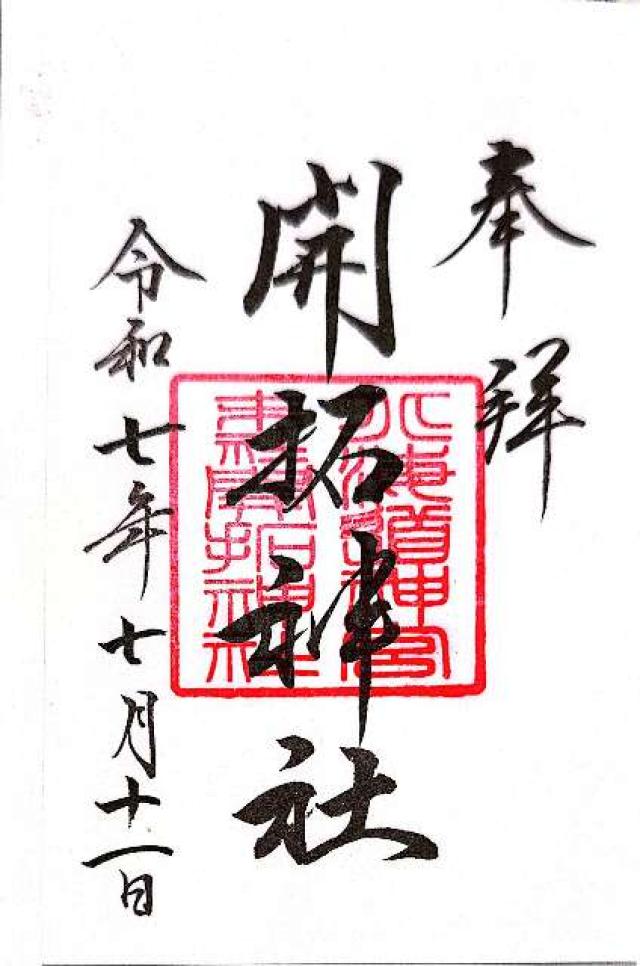 奉拝
開拓神社
北海道神宮
末社開拓神社
令和七年七月十一日